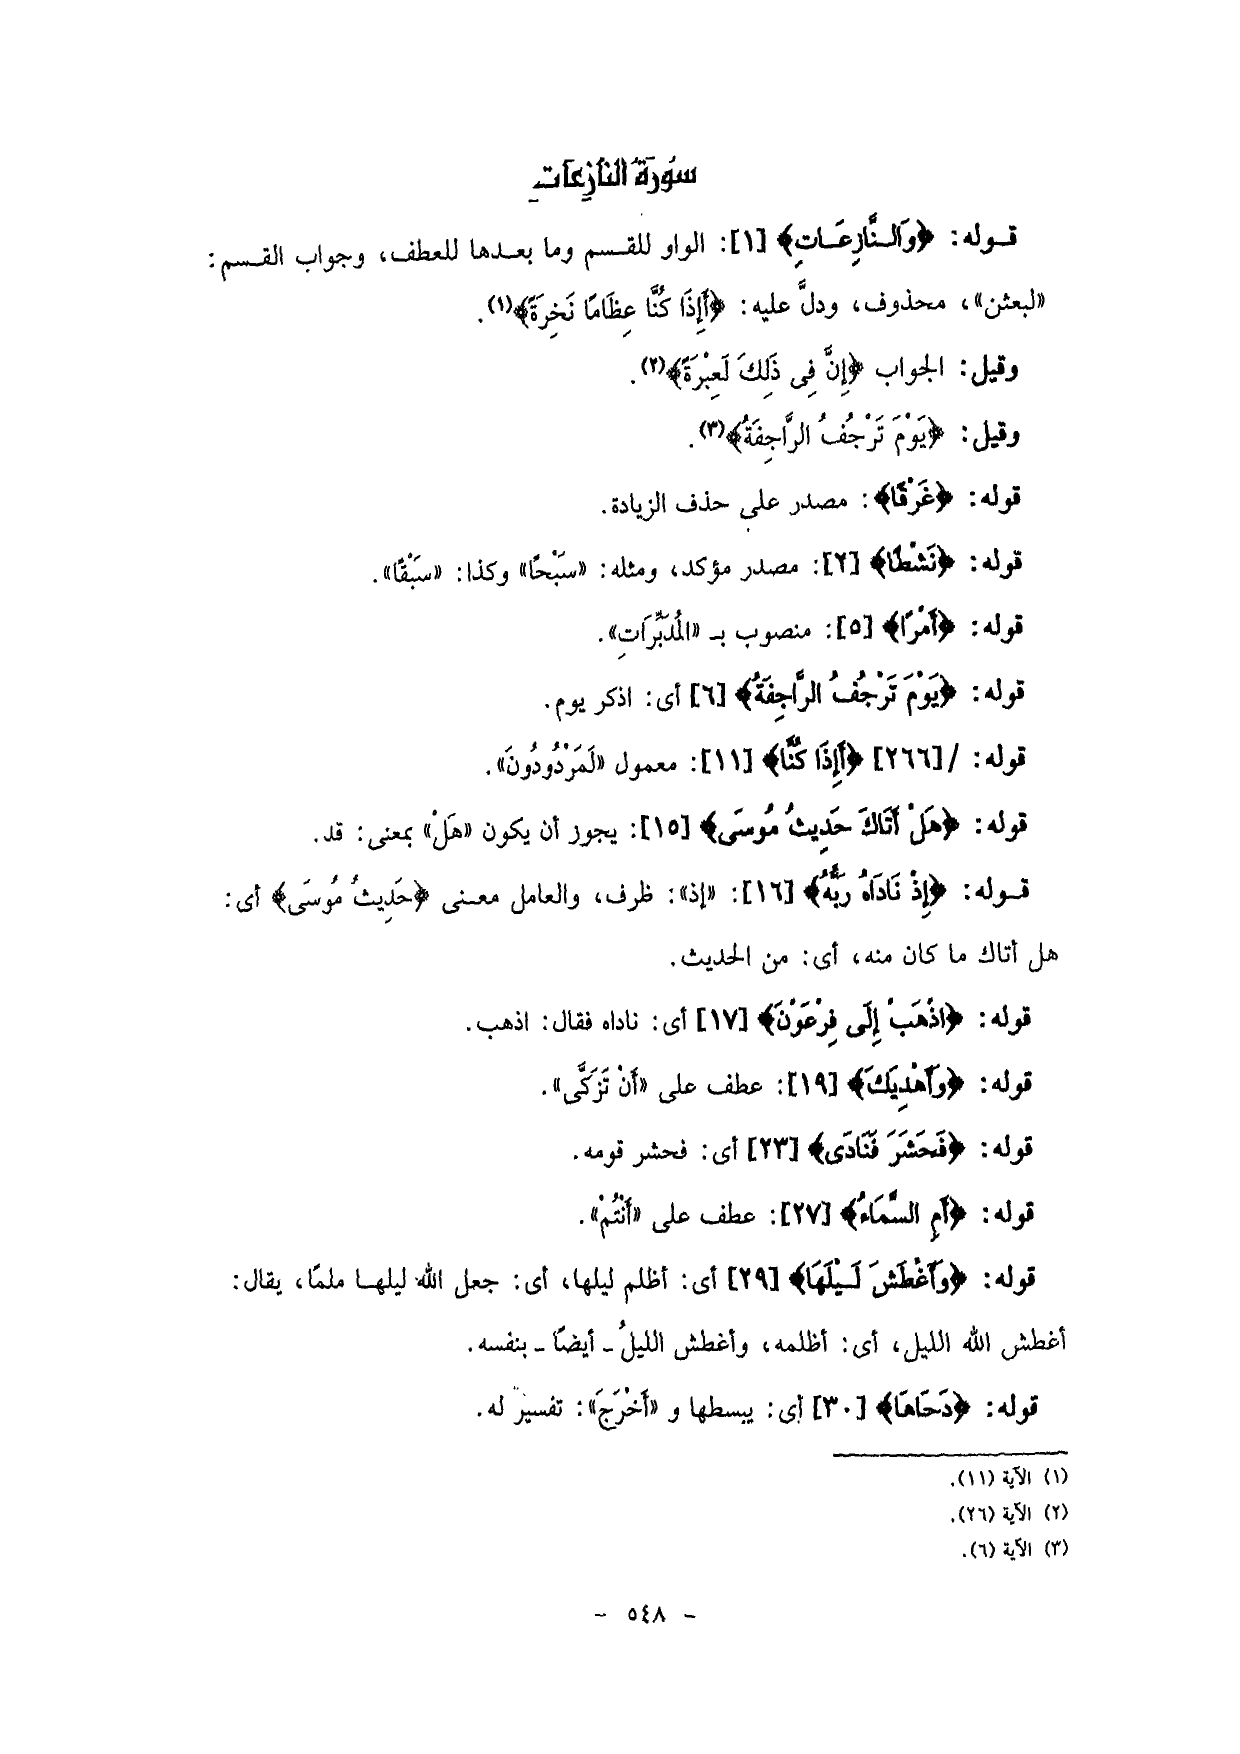 سُورَة النَّازِعَاتِ
قوله: ﴿وَالنَّازِعَاتِ﴾ [١]: الواو للقسم وما بعدها للعطف، وجواب القسم:
«لبعثن»، محذوف، ودلَّ عليه: ﴿أَإِذَا كُنَّا عِظَامًا نَخِرَةً﴾(١).
وقيل: الجواب ﴿إِنَّ فِى ذَلِكَ لَعِبْرَةً﴾(٢).
وقيل: ﴿يَوْمَ تَرْجُفُ الرَّاجِفَةُ﴾(٣).
قوله: ﴿غَرْقًا﴾: مصدر على حذف الزيادة.
قوله: ﴿نَشْطًا﴾ [٢]: مصدر مؤكد، ومثله: «سَبْحًا» وكذا: «سَبْقًا».
قوله: ﴿أَمْرًا﴾ [٥]: منصوب بـ «المُدَبِّرَاتِ».
قوله: ﴿يَوْمَ تَرْجُفُ الرَّاجِفَةُ﴾ [٦] أى: اذكر يوم.
قوله: /[٢٦٦] ﴿أَإِذَا كُنَّا﴾ [١١]: معمول «لَمَرْدُودُونَ».
قوله: ﴿هَلْ أَتَاكَ حَدِيثُ مُوسَى﴾ [١٥]: يجوز أن يكون «هَلْ» بمعنى: قد.
قوله: ﴿إِذْ نَادَاهُ رَبُّهُ﴾ [١٦]: «إذ»: ظرف، والعامل معنى ﴿حَدِيثُ مُوسَى﴾ أى:
هل أتاك ما كان منه، أى: من الحديث.
قوله: ﴿اذْهَبْ إِلَى فِرْعَوْنَ﴾ [١٧] أى: ناداه فقال: اذهب.
قوله: ﴿وَأَهْدِيَكَ﴾ [١٩]: عطف على «أَنْ تَزَكَّى».
قوله: ﴿فَحَشَرَ فَنَادَى﴾ [٢٣] أى: فحشر قومه.
قوله: ﴿أَمِ السَّمَاءُ﴾ [٢٧]: عطف على «أَنْتُمْ».
قوله: ﴿وَأَغْطَشَ لَيْلَهَا﴾ [٢٩] أى: أظلم ليلها، أى: جعل الله ليلها ملمًا، يقال:
أغطش الله الليل، أى: أظلمه، وأغطش الليلُ ـ أيضًا ـ بنفسه.
قوله: ﴿دَحَاهَا﴾ [٣٠] أى: يبسطها و «أَخْرَجَ»: تفسير له.
(١) الآية (١١).
(٢) الآية (٢٦).
(٣) الآية (٦).
- ٥٤٨ -